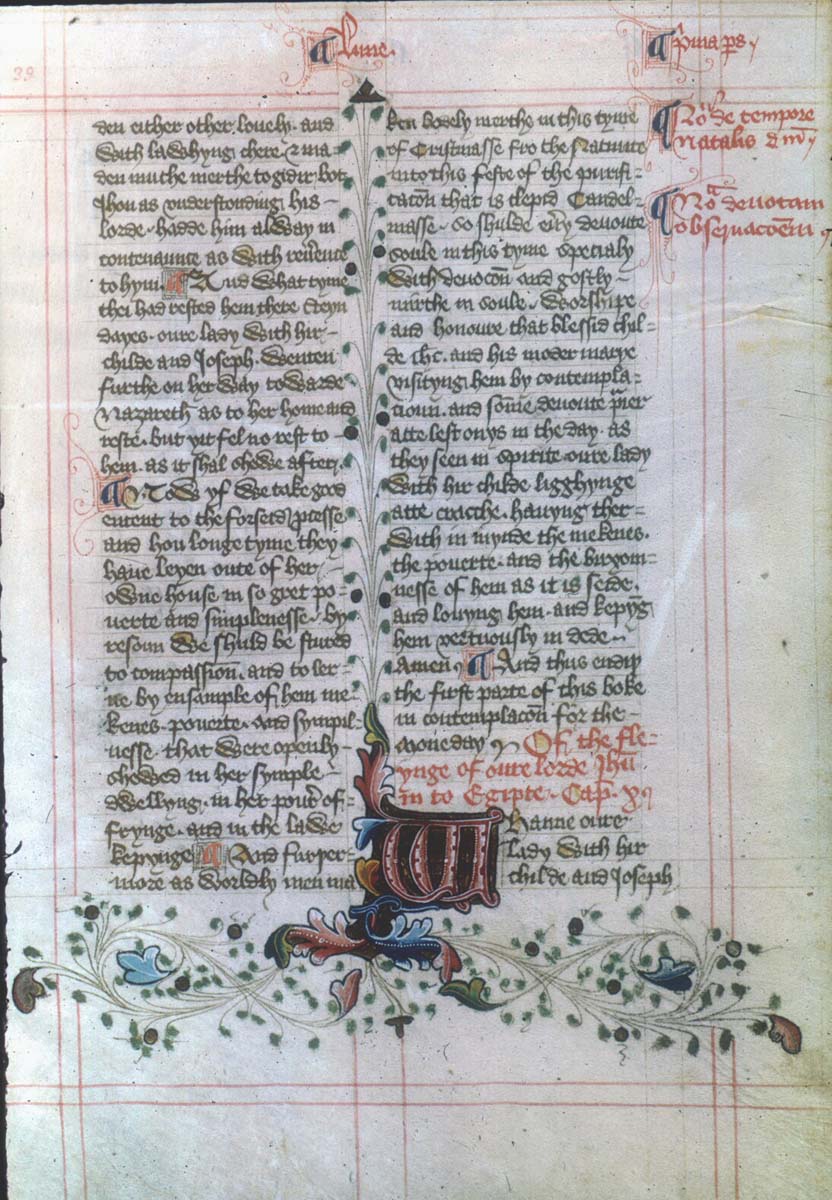 39
¶ Lune.
¶ p̄ma ps
den either other louely. and
With lawhyng chere & ma=
den muche merthe to gidir, bot
Jhon as vnderstonding his
lorde. hadde him alway in
contenaunce as With reuerence
to hym. ¶ And What tyme
thei had rested hem there seyn
dayes. oure lady With hir
childe and Joseph. Wenten
furthe on her Way to Warde
Nazareth as to her home and
reste. but yit fel no rest to
hem. as it shal shewe after.
¶ Now yf We take good
entent to the forseid ꝓcesse
and hou longe tyme they
haue leyen oute of her
owne house in so gret po=
uerte and simplenesse. by
resoun We shuld be stired
to compassion. and to ler=
ne by ensample of hem me=
kenes. pouerte. and sympil=
nesse. that Were openly
shewed in her symple
dwellyng. in her pou͛t of=
frynge. and in the lawe
kepynge ¶ And furper=
more as Worldly men ma
ken bodely merthe in this tyme
of Cristmasse fro the Natiuite
in to this feste of the purifi=
cacōn that is clepid Candel=
masse. so shulde eu͛y deuoute
soule in this tyme specialy
With deuocōn and gostly
mirthe in soule. Worshipe
and honoure that blessid chil=
de ihc. and his moder marye
visityng hem by contempla=
cioun. and som̄e deuoute p͛ier
atte lest onys in the day. as
they seen in spirite oure lady
With hir childe ligghynge
atte cracche. hauyng ther=
With in mynde the mekenes.
the pouerte. and the buxom=
nesse of hem as it is seide.
and louyng hem. and kepyḡ
hem vertuously in dede.
Amen. ¶ And thus endiþ
the first parte of this boke
in contemplacōn for the
moneday Of the fle=
ynge of oure lorde Jhū
in to Egipte. Cap. x
Whanne oure
lady With hir
childe and Joseph
¶ No͛ de tempore
Natalis dm̄
¶ No͛ deuotam
obseruacōem